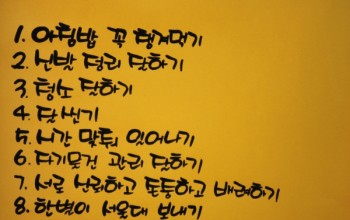 1. 아침밥 꼭 챙겨먹기
2. 신발 정리 잘하기
3. 청소 잘하기
4. 잘 씻기
5. 시간 맞춰 일어나기
6. 자기물건 관리 잘하기
7. 서로 신뢰하고 소통하고 배려하기
8. 한별이 서울대 보내기